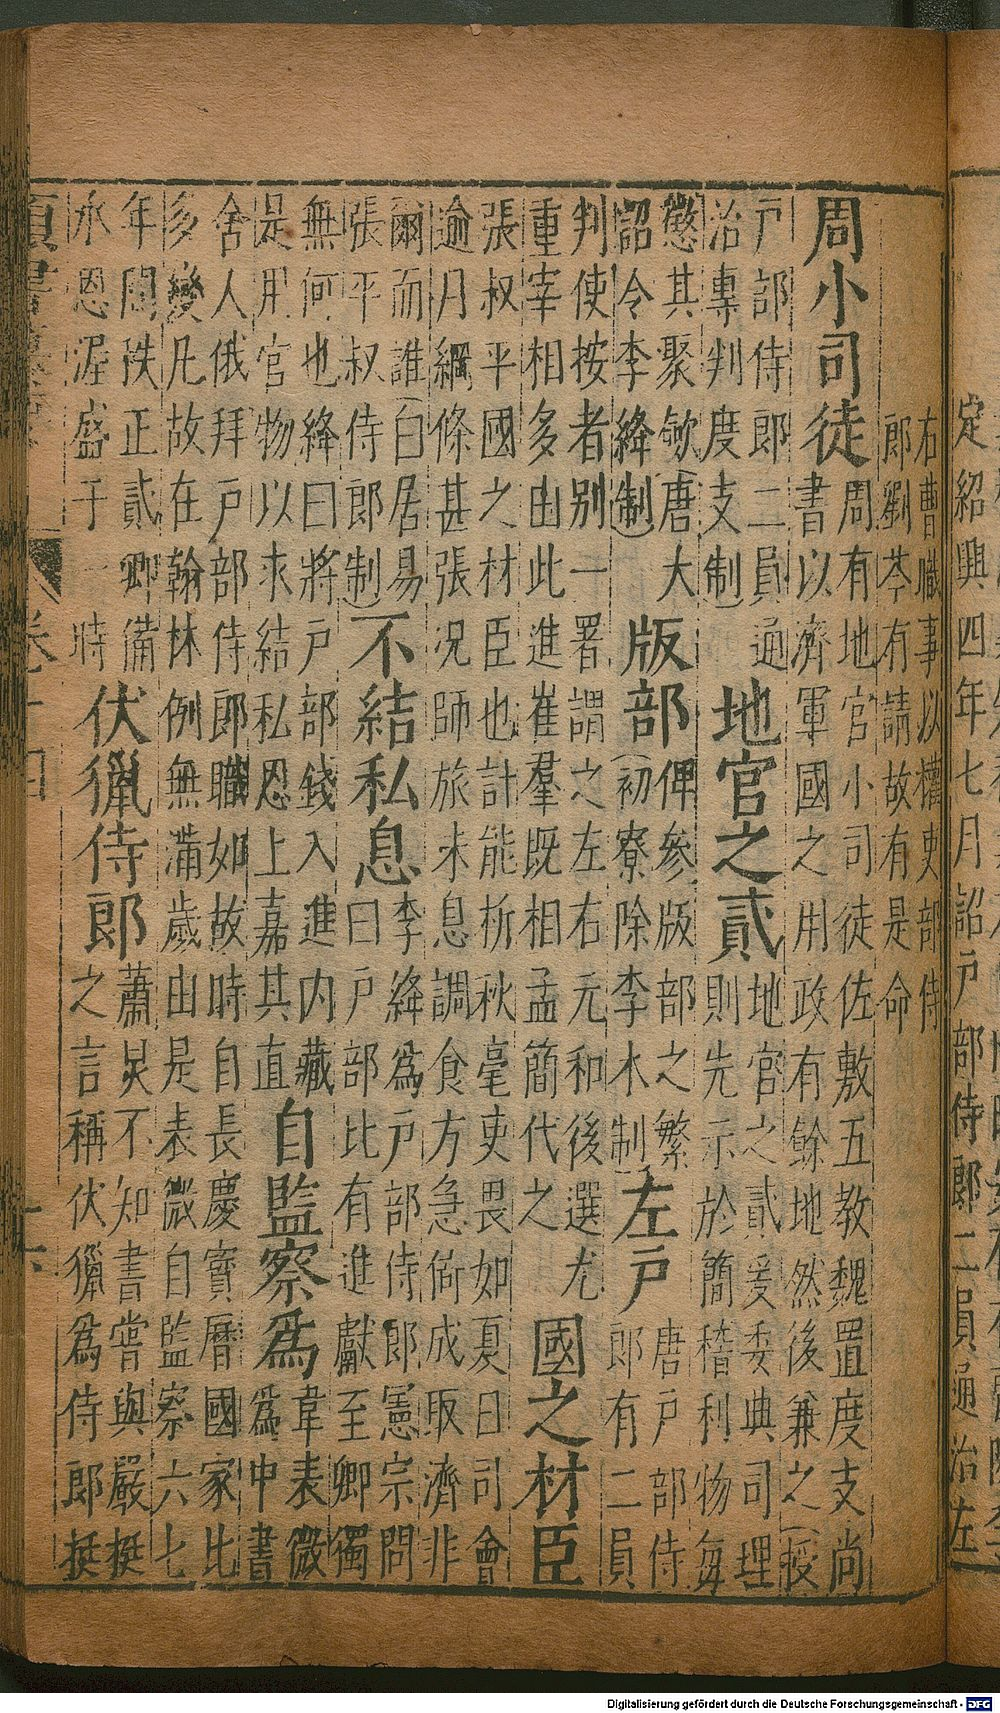 定紹興四年七月詔戶部侍郎二員通治左
右曹職事以權吏部侍
郎劉苓有請故有是命
周小司徒
周有地官小司徒佐敷五教魏置度支尚
書以濟軍國之用政有餘地然後兼之(授
戶部侍郎二員通
治專判度支制)
地官之貳
地官之貳爰委典司理
則先示於簡稽利物每
懲其聚斂(唐大
詔令李絳制)
版部
俾參版部之繁
(初寮除李木制)
左戶
唐戶部侍
郎有二員
判使按者別一署謂之左右元和後選尤
重宰相多由此進崔羣既相孟簡代之
國之材臣
張叔平國之材臣也計能析秋毫吏畏如夏日司會
逾月綱條甚張況師旅未息調食方急倚成取濟非
爾而誰(白居易
張平叔侍郎制)
不結私息
李絳爲戶部侍郎憲宗問
曰戶部比有進獻至卿獨
無何也絳曰將戶部錢入進內藏
是用官物以求結私恩上嘉其直
自監察爲
韋表微
爲中書
舍人俄拜戶部侍郎職如故時自長慶寶曆國家比
多變凡故在翰林例無滿歲由是表微自監察六七
年間秩正貳卿備
承恩渥盛于一時
伏獵侍郎
蕭炅不知書嘗與嚴挺
之言稱伏獵爲侍郎挺
Digitalisierung gefördert durch die Deutsche Forschungsgemeinschaft - DFG